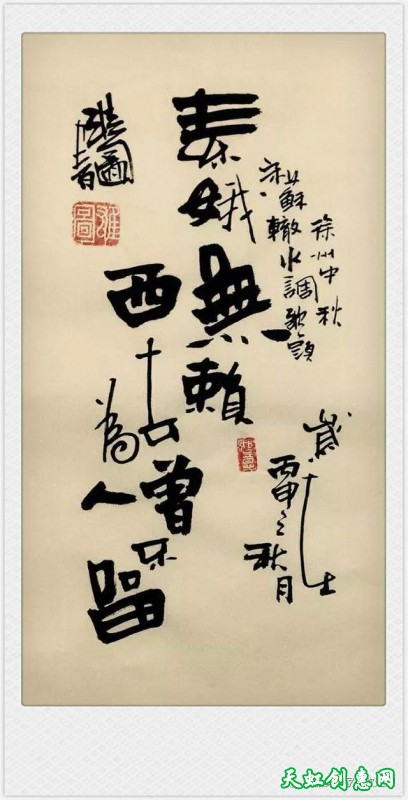 素娥無賴
西去曾不
為人留
宋蘇轍水調歌頭
徐州中秋
丙申之秋月
天虹创意网